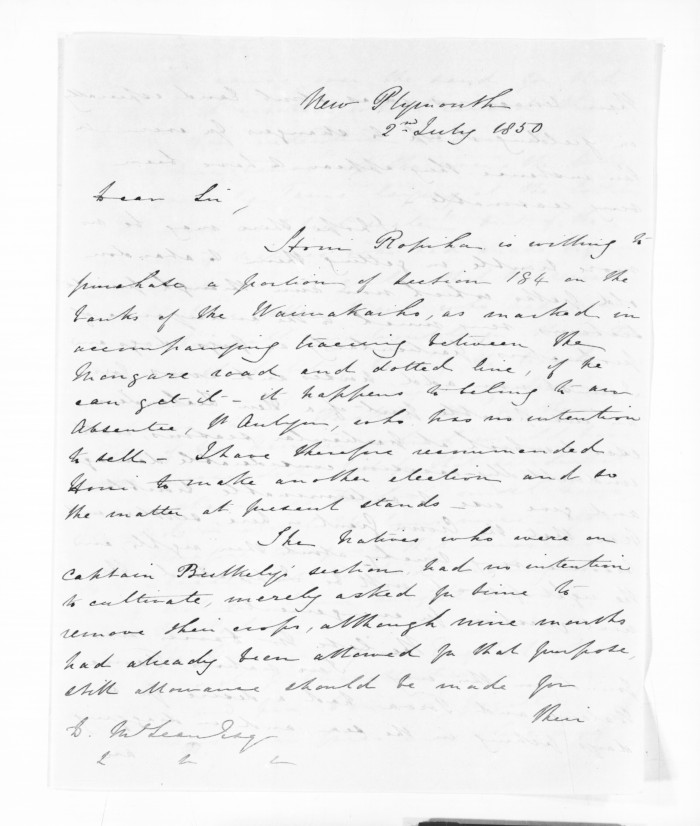 New Plymouth
2nd July 1850
Dear Sir,
Honi Ropiha is willing to
purchase a portion of section 184 on the
banks of the as marked in
accompanying tracing between the
Mangare road and dotted line, if he
can get it - it happens to belong to an
Absentee, who has no intention
to sell - I have therefore recommended
Honi to make another election and so
the matter at present stands -
The Natives who were on
Captain section had no intention
to cultivate, merely asked for time to
remove their crops, although nine months
had already been allowed for that purpose,
still allowance should be made for
their
D. McLean Esq